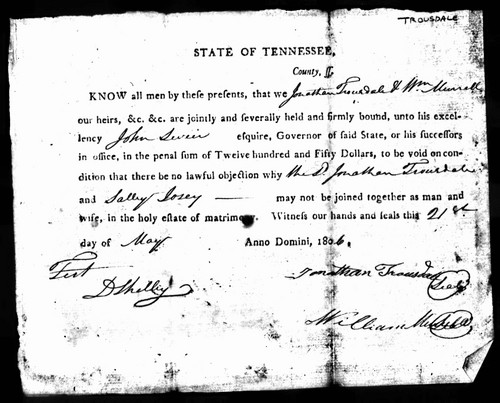 TROUSDALE
STATE OF TENNESSEE,
County, ſſ.
KNOW all men by these presents, that we Jonathan Trousdale & Wm Murrell
our heirs, &c. &c. are jointly and severally held and firmly bound, unto his excel-
lency John Sevier esquire, Governor of said State, or his successors
in office, in the penal sum of Twelve hundred and Fifty Dollars, to be void on con-
dition that there be no lawful objection why the sd. Jonathan Trousdale
and Salley Josey — may not be joined together as man and
wife, in the holy estate of matrimony. Witness our hands and seals this 21st
day of May Anno Domini, 1806.
Test Jonathan Trousdale (Seal)
D Shelby
William Murrell (Seal)